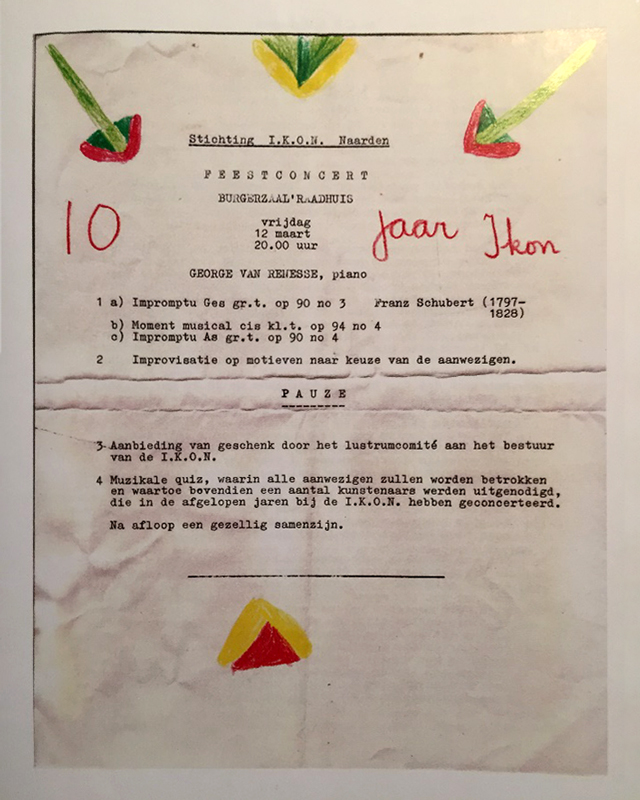 Stichting I.K.O.N. Naarden
FEESTCONCERT
BURGERZAAL'RAADHUIS
10 jaar Ikon
vrijdag
12 maart
20.00 uur
GEORGE VAN RENESSE, piano
1 a) Impromptu Ges gr.t. op 90 no 3 Franz Schubert (1797-
1828)
b) Moment musical cis kl.t. op 94 no 4
c) Impromptu As gr.t. op 90 no 4
2 Improvisatie op motieven naar keuze van de aanwezigen.
PAUZE
3 Aanbieding van geschenk door het lustrumcomité aan het bestuur
van de I.K.O.N.
4 Muzikale quiz, waarin alle aanwezigen zullen worden betrokken
en waartoe bovendien een aantal kunstenaars werden uitgenodigd,
die in de afgelopen jaren bij de I.K.O.N. hebben geconcerteerd.
Na afloop een gezellig samenzijn.